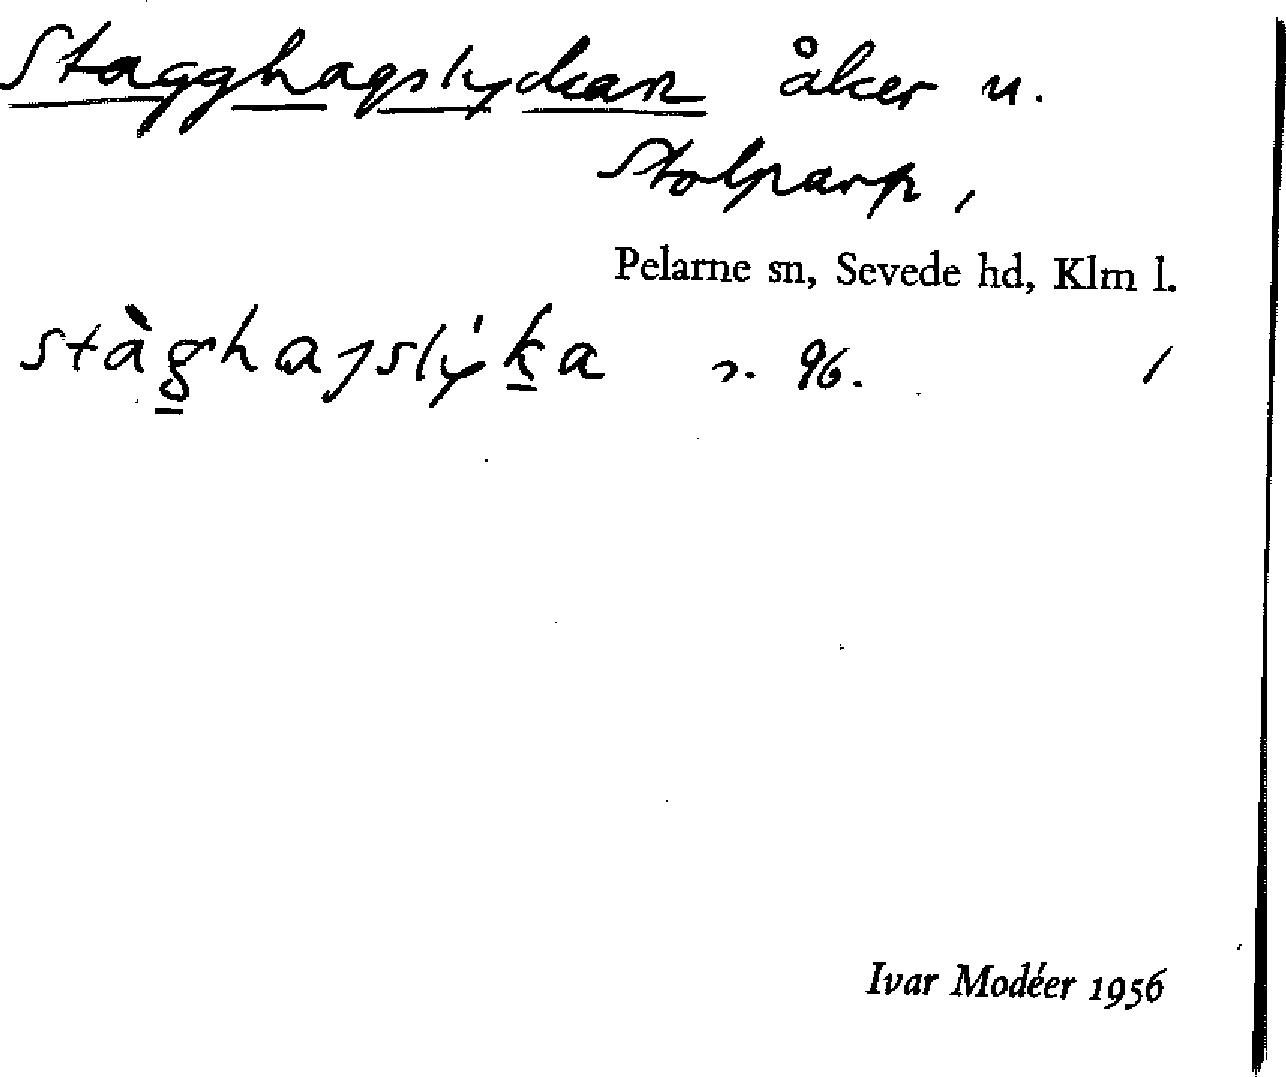 Stagghagslyckan åker u.
Stolparp,
Pelarne sn, Sevede hd, Klm l.
stàg̱haʒslýḵa 96.
Ivar Modéer 1956